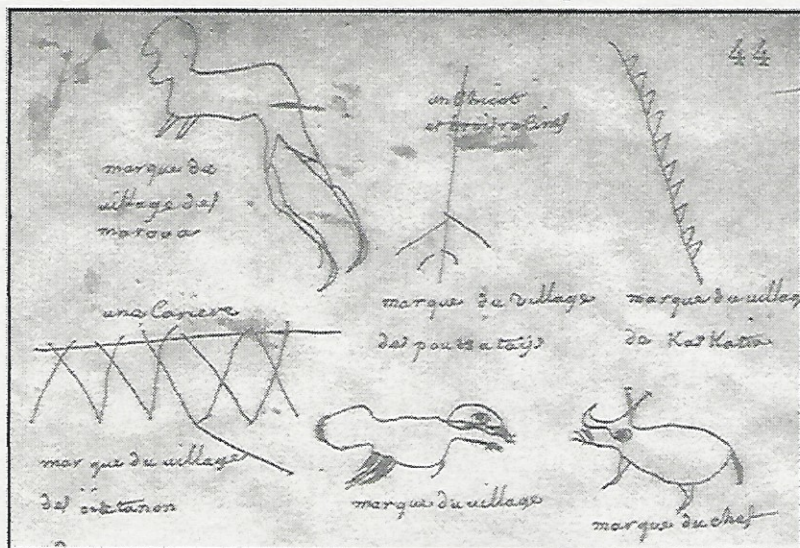 44
marque du
village des
maroua
un chicot
et trois racines
marque du village
des pouttatajs
marque du village
de KasKatia
une Cariere
marque du village
des
marque du village
marque du chef